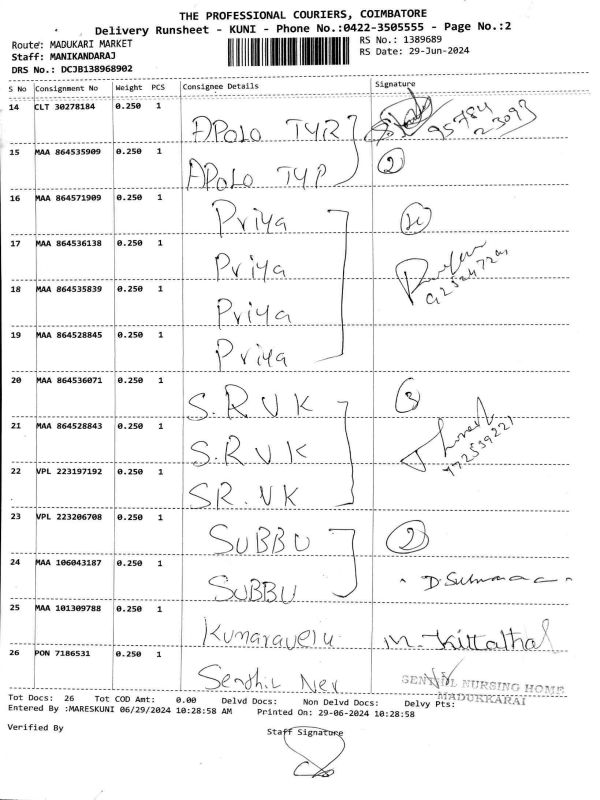 THE PROFESSIONAL COURIERS, COIMBATORE
Delivery Runsheet - KUNI - Phone No.:0422-3505555 - Page No.:2
Route: MADUKARI MARKET
RS No.: 1389689
Staff: MANIKANDARAJ
RS Date: 29-Jun-2024
DRS No.: DCJB138968902
S No Consignment No Weight PCS Consignee Details Signature
14 CLT 30278184 0.250 1 APOLO TYR 95784
23093
15 MAA 864535909 0.250 1 APOLO TYP 2
16 MAA 864571909 0.250 1 Priya
17 MAA 864536138 0.250 1 Priya
18 MAA 864535839 0.250 1 Priya
19 MAA 864528845 0.250 1 Priya
20 MAA 864536071 0.250 1 S.R.V.K 3
21 MAA 864528843 0.250 1 S.R.V.K
22 VPL 223197192 0.250 1 SR.VK
23 VPL 223206708 0.250 1 SUBBU 2
24 MAA 106043187 0.250 1 SUBBU
25 MAA 101309788 0.250 1 Kumaravelu M. Kittathal
26 PON 7186531 0.250 1 Senthil Ner
SENTHIL NURSING HOME
MADUKKARAI
Tot Docs: 26 Tot COD Amt: 0.00 Delvd Docs: Non Delvd Docs: Delvy Pts:
Entered By :MARESKUNI 06/29/2024 10:28:58 AM Printed On: 29-06-2024 10:28:58
Verified By Staff Signature